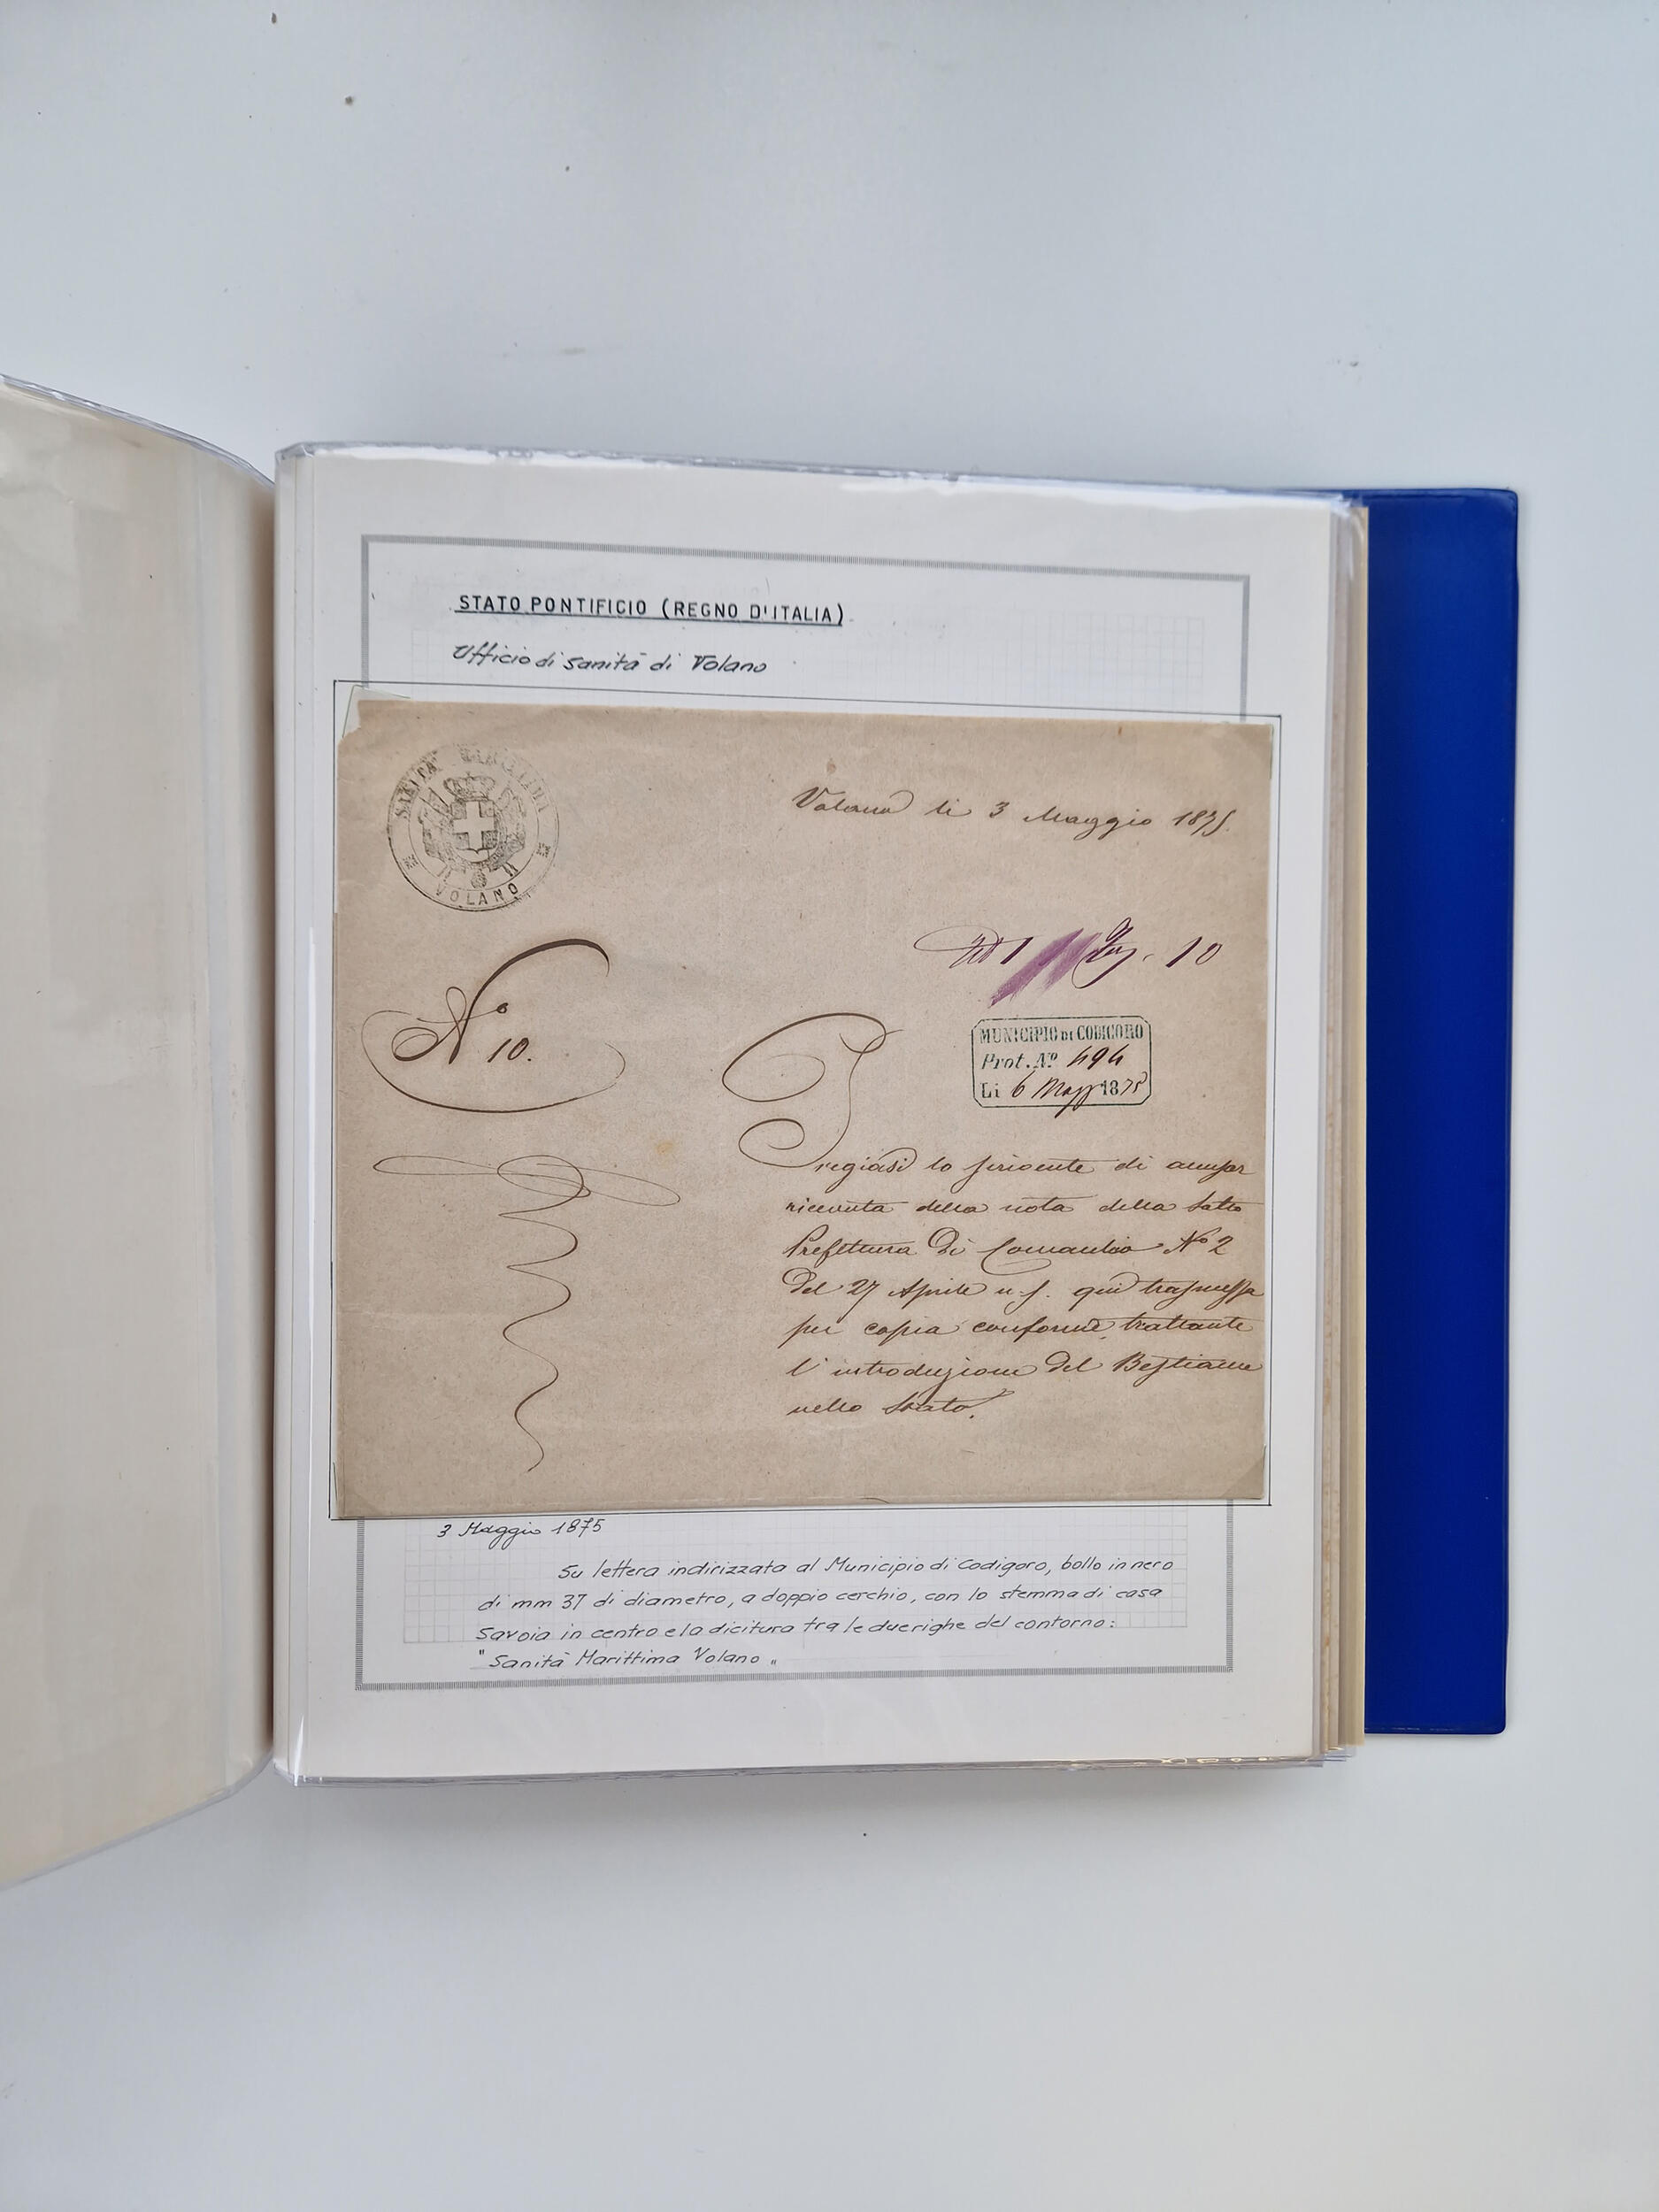 STATO PONTIFICIO (REGNO D'ITALIA)
Ufficio di Sanità di Volano
SANITA' MARITTIMA
VOLANO
Volano li 3 Maggio 1875.
10
N° 10.
MUNICIPIO DI CODIGORO
Prot. N° 494
Li 6 Magg 1875
Pregiasi lo scrivente di accusar
ricevuta della nota della Sotto
Prefettura Di Comacchio N° 2
Del 27 Aprile u. s. qui trasmessa
per copia conforme, trattante
l'introduzione Del Bestiame
nello Stato.
3 Maggio 1875
Su lettera indirizzata al Municipio di Codigoro, bollo in nero
di mm 37 di diametro, a doppio cerchio, con lo stemma di casa
Savoia in centro e la dicitura tra le due righe del contorno:
"Sanità Marittima Volano"